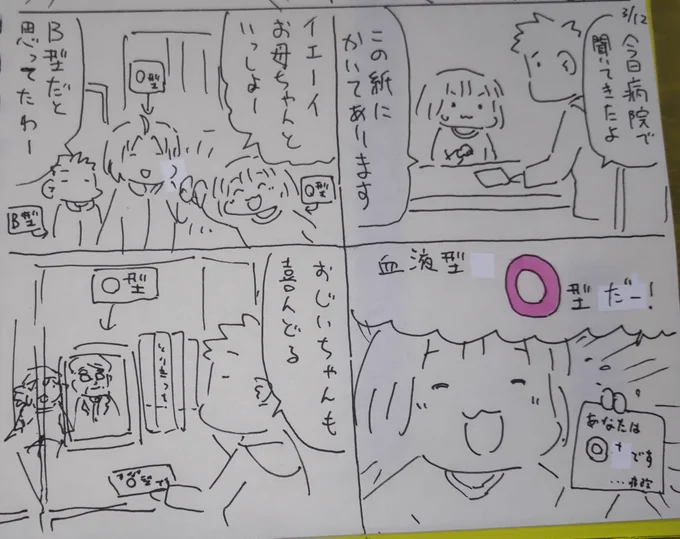 3/12
今日病院で
聞いてきたよ
この紙に
かいてあります
血液型
O型だー!
あなたは
O+です
イエーイ
お母ちゃんと
いっしょー
O型
O型
B型だと
思ってたわー
B型
おじいちゃんも
喜んどる
O型